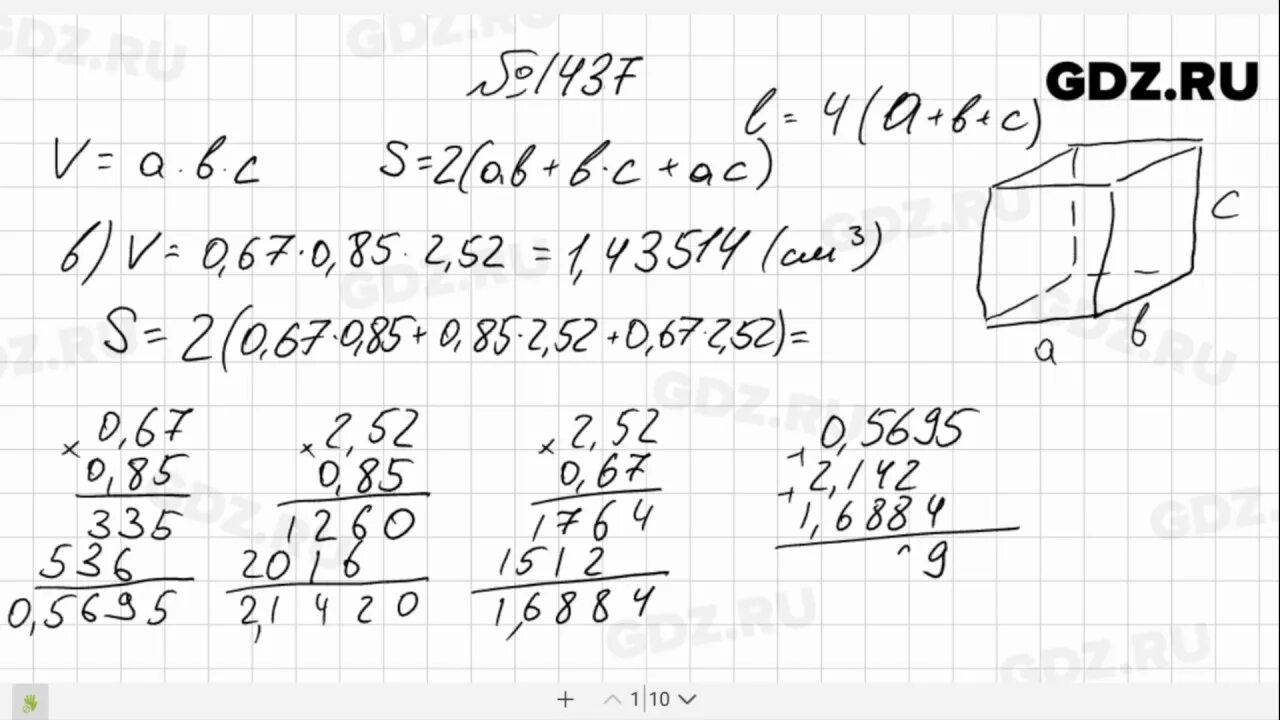 №1437
GDZ.RU
l = 4(a+в+c)
V = a·в·c
S=2(aв+в·c+ac)
в) V = 0,67·0,85·2,52 = 1,43514 (см³)
S = 2(0,67·0,85+0,85·2,52+0,67·2,52)=
c
в
a
× 0,67
0,85
335
536
0,5695
× 2,52
0,85
1260
2016
2,1420
× 2,52
0,67
1764
1512
1,6884
0,5695
+ 2,142
+ 1,6884
9
+ 1 10